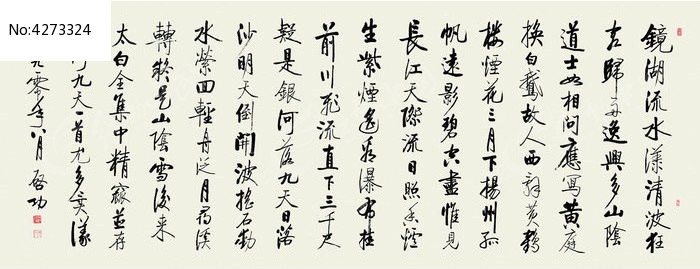 No:4273324
鏡湖流水漾清波狂
客歸舟逸興多山陰
道士如相問應寫黃庭
換白鵝故人西辭黃鶴
樓煙花三月下揚州孤
帆遠影碧空盡惟見
長江天際流日照香爐
生紫煙遙看瀑布挂
前川飛流直下三千尺
疑是銀河落九天日落
沙明天倒開波搖石動
水縈回輕舟泛月尋溪
轉疑是山陰雪後來
太白全集中精並存
九天一首尤多
九零年八月 啓功